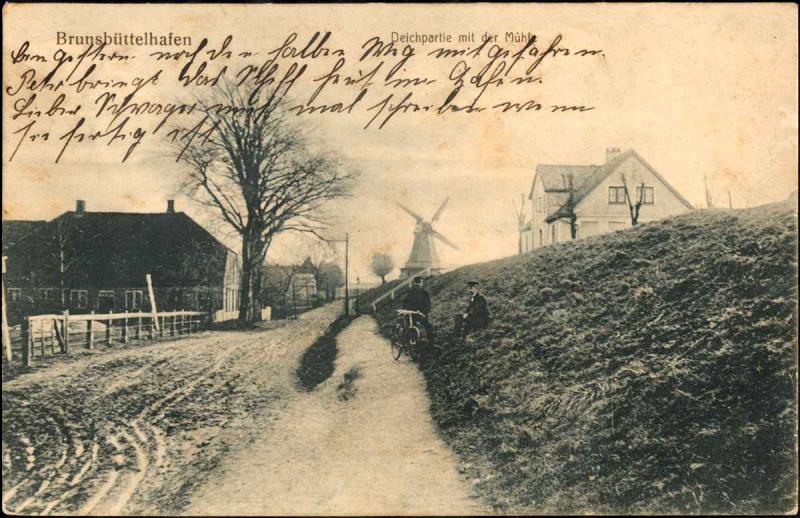 Brunsbüttelhafen
Deichpartie mit der Mühle
Bin gestern noch den halben Weg mitgefahren.
Petr bringt das Schiff heut in Hafen.
Lieber Schwager mußt mal schreiben wenn
sie fertig ist